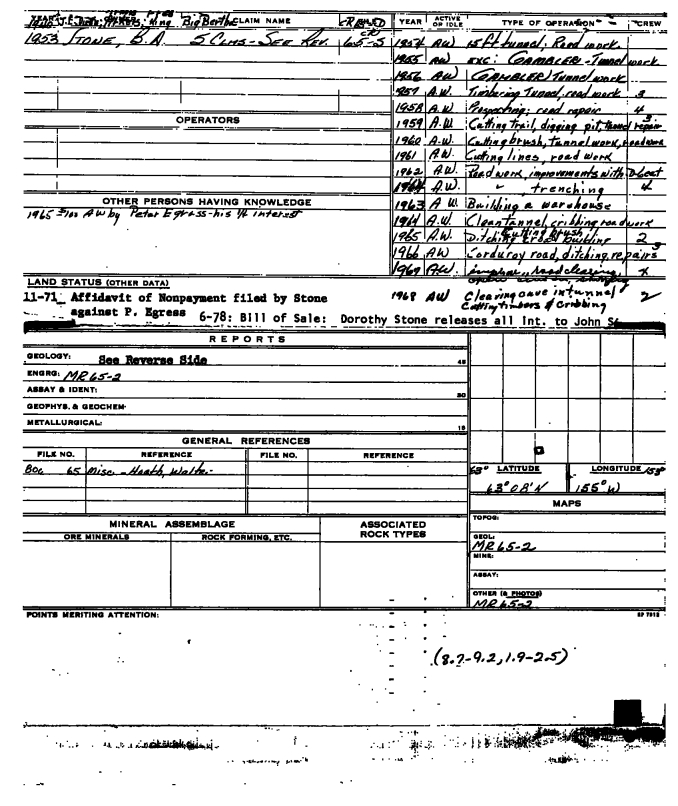 Big Bertha CLAIM NAME YEAR ACTIVE OR IDLE TYPE OF OPERATION CREW
1953 STONE, B.A 5 CLMS - SEE REV. 65-5 1954 AW 15 ft tunnel, Road work.
1955 AW exc: GAMBLER - Tunnel work
1956 AW GAMBLER) Tunnel work
1957 A.W. Timbering Tunnel, road work 3
1958 A.W. Prospecting; road repair 4
OPERATORS
1959 A.W. Cutting trail, digging pit, tunnel repair 3
1960 A.W. Cutting brush, tunnel work, roadwork
1961 A.W. Cutting lines, road work
1962 A.W. Road work, improvements with D-6cat
A.W. " , trenching 4
OTHER PERSONS HAVING KNOWLEDGE
1963 A W. Building a warehouse
1965 AW by Peter Egress - his 1/4 interest
1964 A.W. Clean tunnel, cribbing road work
1965 A.W. Cutting brush, Ditching & road building 2
1966 AW Corduroy road, ditching, repairs 3
AW. road clearing
LAND STATUS (OTHER DATA)
11-71 Affidavit of Nonpayment filed by Stone
against P. Egress 6-78: Bill of Sale: Dorothy Stone releases all Int. to John
1968 AW Clearing cave in tunnel 2
Cutting timbers & Cribbing
REPORTS
GEOLOGY: See Reverse Side 45
ENGRG: MR 65-2
ASSAY & IDENT: 30
GEOPHYS. & GEOCHEM-
METALLURGICAL: 15
GENERAL REFERENCES
FILE NO. REFERENCE FILE NO. REFERENCE
Boc 65 Misc. - Heath, Walter
63° LATITUDE LONGITUDE 153°
63° 08' N 155° W
MAPS
MINERAL ASSEMBLAGE
ORE MINERALS ROCK FORMING, ETC.
ASSOCIATED ROCK TYPES
TOPOG:
GEOL:
MR 65-2
MINE:
ASSAY:
OTHER (& PHOTOS)
MR 65-2
POINTS MERITING ATTENTION:
(8.7-9.2, 1.9-2.5)